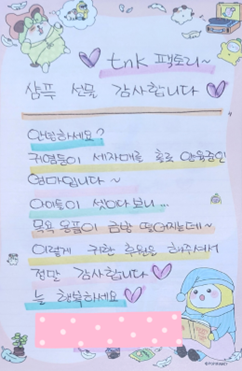 tnk 팩토리~
샴푸 선물 감사합니다
안녕하세요?
귀염둥이 세자매를 홀로 양육중인
엄마입니다~
아이들이 셋이다 보니...
목욕 용품이 금방 떨어지는데~
이렇게 귀한 후원을 해주셔서
정말 감사합니다
늘 행복하세요